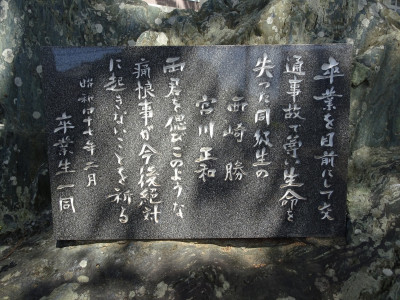 卒業を目前にして交
通事故で尊い生命を
失った同級生の
西崎 勝
宮川 正和
両君を偲びこのような
痛恨事が今後絶対
に起きないことを祈る
昭和四十七年二月
卒業生一同